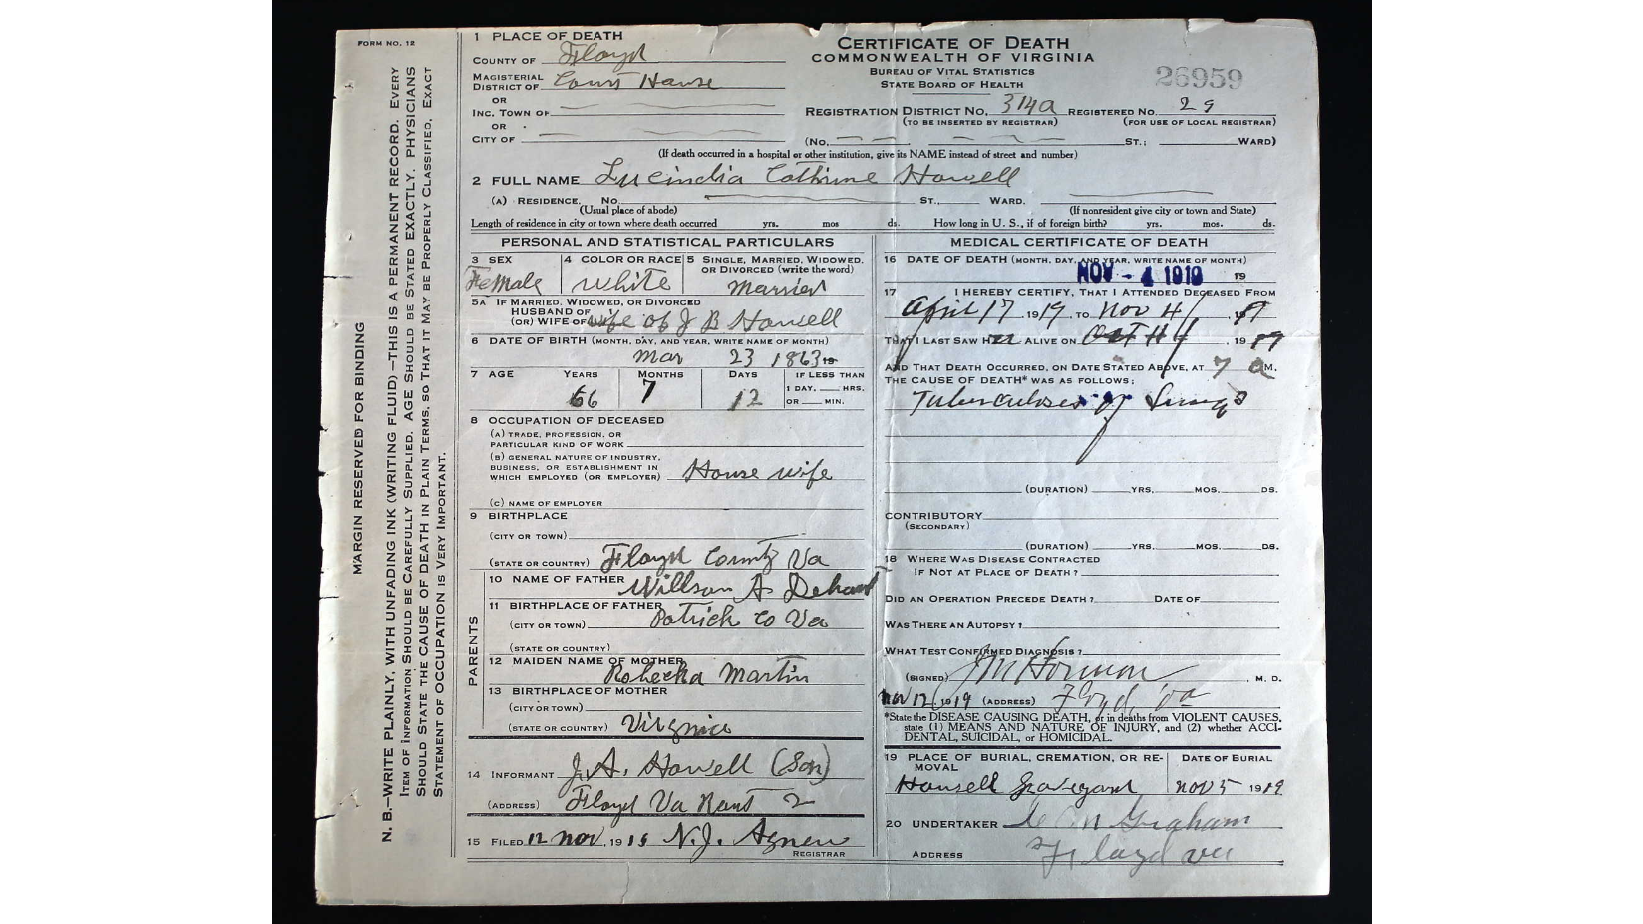 FORM NO. 12
MARGIN RESERVED FOR BINDING
N. B.—WRITE PLAINLY, WITH UNFADING INK (WRITING FLUID)—THIS IS A PERMANENT RECORD. EVERY
ITEM OF INFORMATION SHOULD BE CAREFULLY SUPPLIED. AGE SHOULD BE STATED EXACTLY. PHYSICIANS
SHOULD STATE THE CAUSE OF DEATH IN PLAIN TERMS, SO THAT IT MAY BE PROPERLY CLASSIFIED. EXACT
STATEMENT OF OCCUPATION IS VERY IMPORTANT.
1 PLACE OF DEATH
COUNTY OF Floyd
MAGISTERIAL DISTRICT OF Court House
OR
INC. TOWN OF
OR
CITY OF
CERTIFICATE OF DEATH
COMMONWEALTH OF VIRGINIA
BUREAU OF VITAL STATISTICS
STATE BOARD OF HEALTH
26959
REGISTRATION DISTRICT NO. 314a REGISTERED NO. 29
(TO BE INSERTED BY REGISTRAR) (FOR USE OF LOCAL REGISTRAR)
(No. ST.; WARD)
(If death occurred in a hospital or other institution, give its NAME instead of street and number)
2 FULL NAME Lucindia Cathrine Howell
(A) RESIDENCE. No. ST., WARD.
(Usual place of abode) (If nonresident give city or town and State)
Length of residence in city or town where death occurred yrs. mos ds. How long in U. S., if of foreign birth? yrs. mos. ds.
PERSONAL AND STATISTICAL PARTICULARS
3 SEX Female
4 COLOR OR RACE White
5 SINGLE, MARRIED, WIDOWED, OR DIVORCED (write the word) Married
5A IF MARRIED, WIDOWED, OR DIVORCED
HUSBAND OF
(OR) WIFE OF wife of J B Howell
6 DATE OF BIRTH (MONTH, DAY, AND YEAR, WRITE NAME OF MONTH)
Mar 23 1863 19
7 AGE YEARS MONTHS DAYS IF LESS THAN
66 7 12 1 DAY, HRS.
OR MIN.
8 OCCUPATION OF DECEASED
(A) TRADE, PROFESSION, OR
PARTICULAR KIND OF WORK
(B) GENERAL NATURE OF INDUSTRY,
BUSINESS, OR ESTABLISHMENT IN
WHICH EMPLOYED (OR EMPLOYER) House wife
(C) NAME OF EMPLOYER
9 BIRTHPLACE
(CITY OR TOWN)
(STATE OR COUNTRY) Floyd County Va
PARENTS
10 NAME OF FATHER Willson A Dehart
11 BIRTHPLACE OF FATHER
(CITY OR TOWN) Patrick Co Va
(STATE OR COUNTRY)
12 MAIDEN NAME OF MOTHER Rebecka Martin
13 BIRTHPLACE OF MOTHER
(CITY OR TOWN)
(STATE OR COUNTRY) Virgnia
14 INFORMANT J. A. Howell (Son)
(ADDRESS) Floyd Va Rout 2
15 FILED 12 Nov, 1919 N. J. Agnew
REGISTRAR
MEDICAL CERTIFICATE OF DEATH
16 DATE OF DEATH (MONTH, DAY, AND YEAR, WRITE NAME OF MONTH)
NOV - 4 1919 19
17 I HEREBY CERTIFY, THAT I ATTENDED DECEASED FROM
April 17, 1919, TO Nov 4, 1919
THAT I LAST SAW HER ALIVE ON 1919
AND THAT DEATH OCCURRED, ON DATE STATED ABOVE, AT 7 a M.
THE CAUSE OF DEATH* WAS AS FOLLOWS:
Tuberculoses of Lungs
(DURATION) YRS. MOS. DS.
CONTRIBUTORY
(SECONDARY)
(DURATION) YRS. MOS. DS.
18 WHERE WAS DISEASE CONTRACTED
IF NOT AT PLACE OF DEATH?
DID AN OPERATION PRECEDE DEATH? DATE OF
WAS THERE AN AUTOPSY?
WHAT TEST CONFIRMED DIAGNOSIS?
(SIGNED) M. D.
Nov 12, 1919 (ADDRESS) Floyd Va
*State the DISEASE CAUSING DEATH, or in deaths from VIOLENT CAUSES,
state (1) MEANS AND NATURE OF INJURY, and (2) whether ACCI-
DENTAL, SUICIDAL, or HOMICIDAL.
19 PLACE OF BURIAL, CREMATION, OR RE- DATE OF BURIAL
MOVAL
Howell Graveyard Nov 5 1919
20 UNDERTAKER Graham
ADDRESS Floyd Va